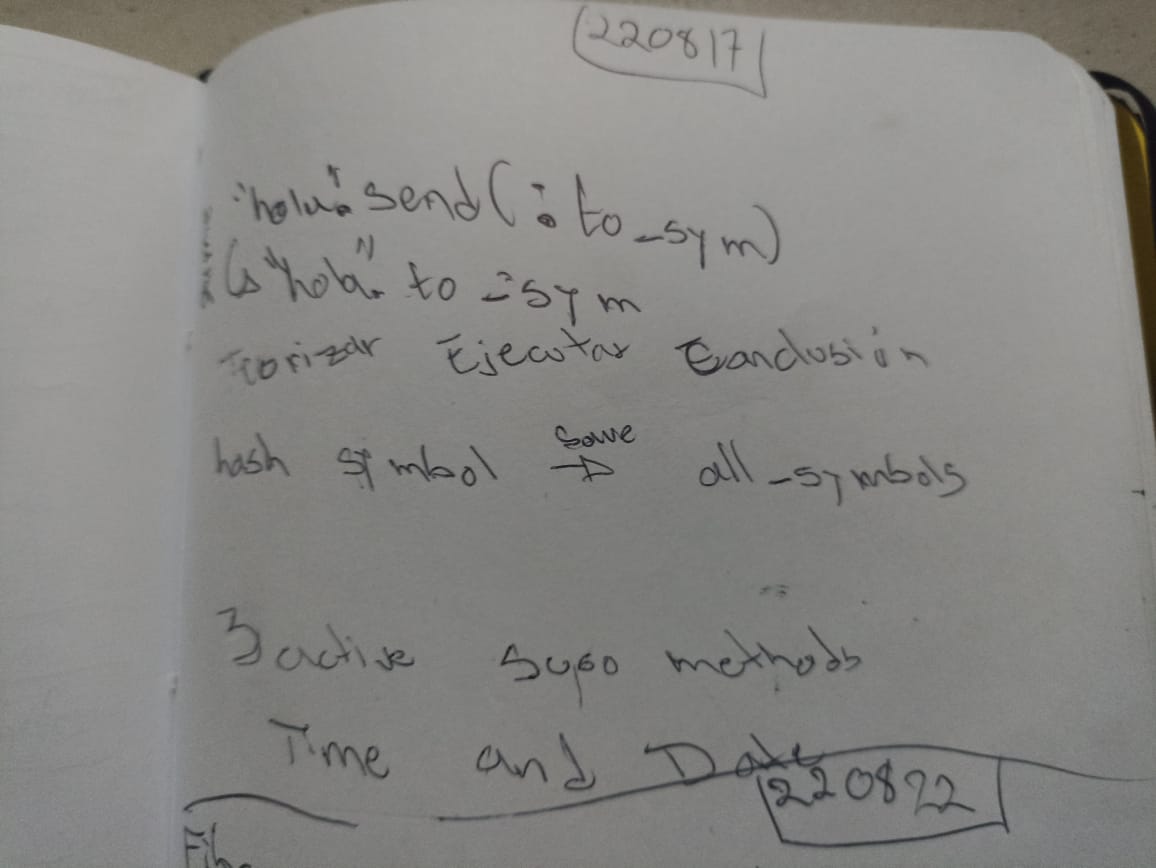 220817
"hola".send(:to_sym)
"hola".to_sym
Teorizar Ejecutar Conclusión
hash symbol save → all_symbols
3 active methods
Time and Date
220822